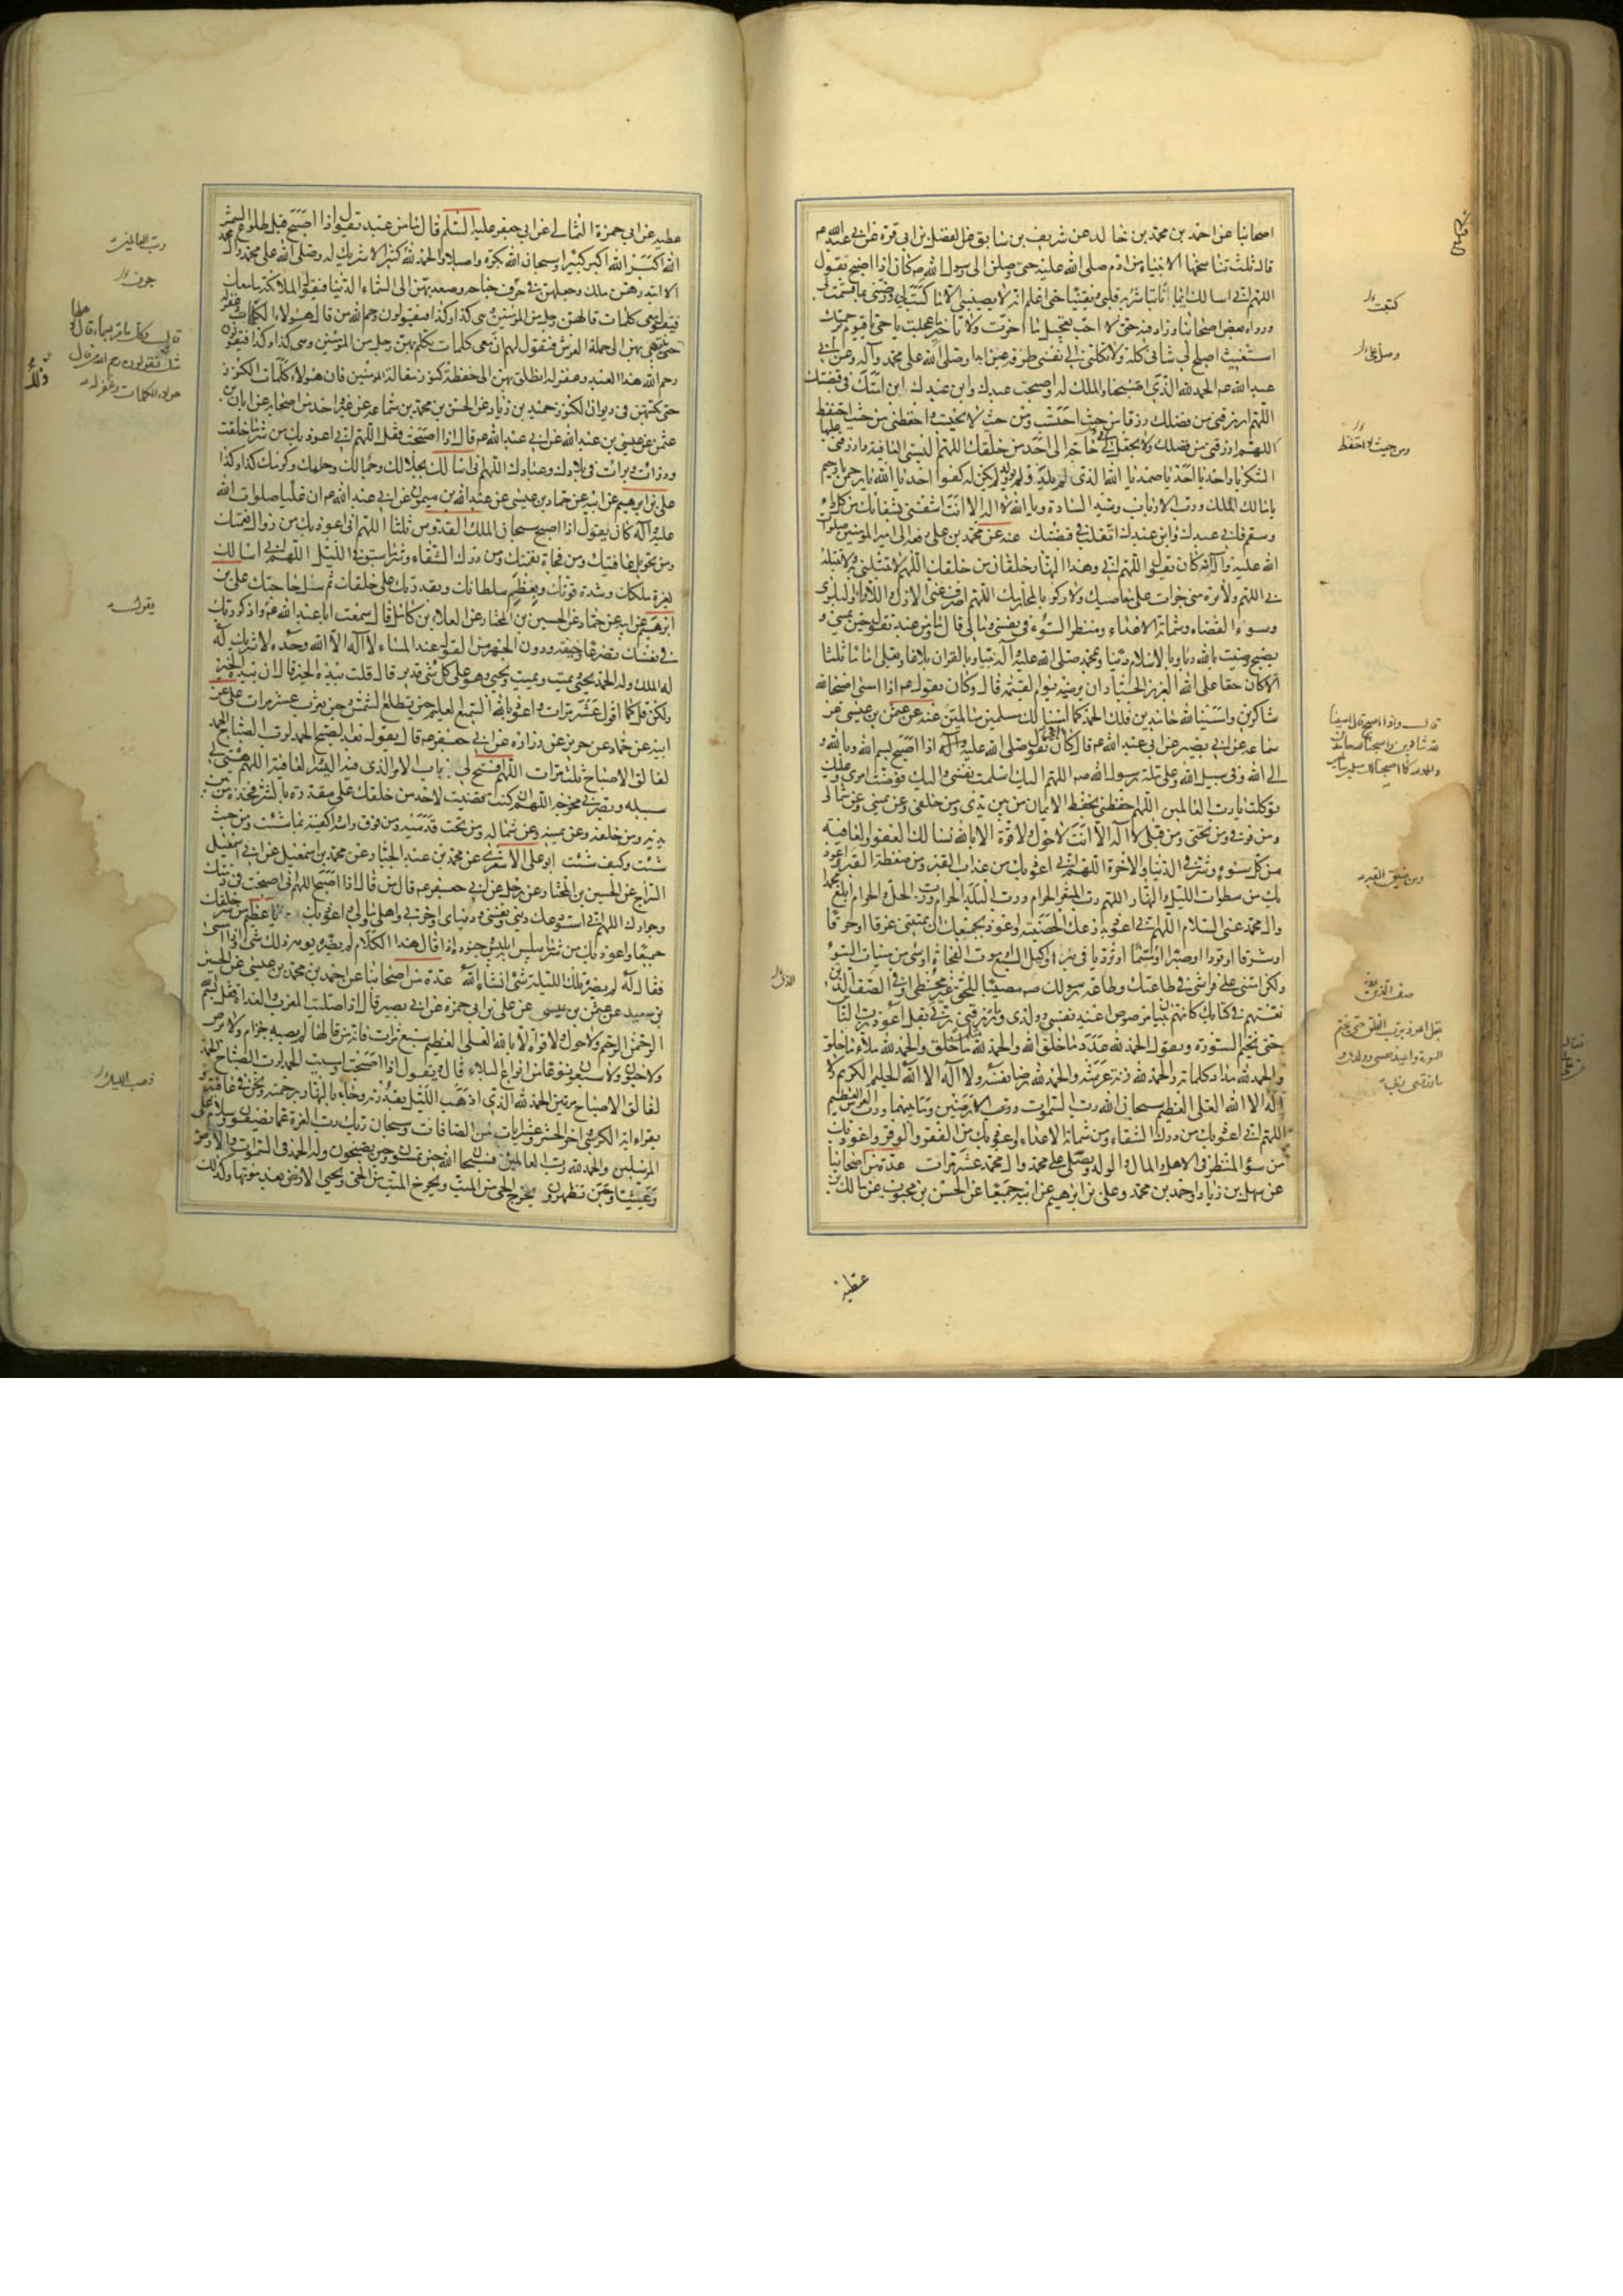 اصحابنا عن احمد بن محمد بن خالد عن شريف بن سابق عن الفضل بن ابى قرة عن ابى عبد الله عم
قال ثلث تناسخها الانبياء من ادم صلى الله عليه حتى وصلن الى رسول الله صم كان اذا اصبح يقول
اللهم انى اسالك ايمانا تباشر به قلبى ويقينا حتى اعلم انه لا يصيبنى الا ما كتبت لى ورضنى بما قسمت لى
ورواه بعض اصحابنا وزاد فيه حتى لا احب تعجيل ما اخرت ولا تاخير ما عجلت يا حى يا قيوم برحمتك
استغيث اصلح لى شانى كله ولا تكلنى الى نفسى طرفة عين ابدا وصلى الله على محمد وآله وعن ابى
عبد الله عم الحمد لله الذى اصبحنا والملك له واصبحت عبدك وابن عبدك ابن امتك فى قبضتك
اللهم ارزقنى من فضلك رزقا من حيث احتسب ومن حيث لا احتسب واحفظنى من حيث احتفظ
اللهم ارزقنى من فضلك ولا تجعل لى حاجة الى احد من خلقك اللهم البسنى العافية وارزقنى عليها
الشكر يا واحد يا احد يا صمد يا الله الذى لم يلد ولم يولد ولم يكن له كفوا احد يا الله يا رحمن يا رحيم
يا مالك الملك ورب الارباب وسيد السادة ويا الله لا اله الا انت اشفنى بشفائك من كل داء
وسقم فانى عبدك وابن عبدك اتقلب فى قبضتك عنه عن محمد بن على رفعه الى امير المؤمنين صلوات
الله عليه وآله انه كان يقول اللهم انى وهذا النهار خلقان من خلقك اللهم لا تبتلنى به ولا تبتله
بى اللهم ولا تره منى جراة على معاصيك ولا ركوبا لمحارمك اللهم اصرف عنى الازل واللاواء والبلوى
وسوء القضاء وشماتة الاعداء ومنظر السوء فى نفسى ومالى قال وما من عبد يقول حين يمسى و
يصبح رضيت بالله ربا وبالاسلام دينا وبمحمد صلى الله عليه وآله نبيا وبالقران بلاغا وبعلى اماما ثلثا
الا كان حقا على الله العزيز الجبار ان يرضيه يوم القيمة قال وكان يقول عم اذا امسى اصبحنا لله
شاكرين وامسينا لله حامدين فلك الحمد كما امسينا لك مسلمين سالمين عنه عن عثمن بن عيسى عن
سماعة عن ابى بصير عن ابى عبد الله عم قال كان ابى يقول صلى الله عليه وآله اذا اصبح بسم الله وبالله و
الى الله وفى سبيل الله وعلى ملة رسول الله صم اللهم اليك اسلمت نفسى واليك فوضت امرى وعليك
توكلت يا رب العالمين اللهم احفظنى بحفظ الايمان من بين يدى ومن خلفى وعن يمينى وعن شمالى
ومن فوقى ومن تحتى ومن قبلى لا اله الا انت لا حول ولا قوة الا بالله نسالك العفو والعافية
من كل سوء وشر فى الدنيا والاخرة اللهم انى اعوذ بك من عذاب القبر ومن ضغطة القبر واعوذ
بك من سطوات الليل والنهار اللهم رب المشعر الحرام ورب البلد الحرام ورب الحل والحرام ابلغ محمدا
وال محمد عنى السلام اللهم انى اعوذ بدرعك الحصينة واعوذ بجمعك ان تميتنى غرقا او حرقا
او شرقا او قودا او صبرا او مسما او ترديا فى بئر او اكيل السبع او موت الفجاة او بشئ من ميتات السوء
ولكن امتنى على فراشى فى طاعتك وطاعة رسولك صم مصيبا للحق غير مخطئ او فى الصف الذين
نعتهم فى كتابك كانهم بنيان مرصوص اعيذ نفسى وولدى وما رزقنى ربى بقل اعوذ برب الناس
حتى يختم السورة ويقول الحمد لله عدد ما خلق الله والحمد لله مثل ما خلق والحمد لله ملاء ما خلق
والحمد لله مداد كلماته والحمد لله زنة عرشه والحمد لله رضا نفسه ولا اله الا الله الحليم الكريم ولا
اله الا الله العلى العظيم سبحان الله رب السموات ورب الارضين وما بينهما ورب العرش العظيم
اللهم انى اعوذ بك من درك الشقاء ومن شماتة الاعداء واعوذ بك من الفقر والوقر واعوذ بك
من سوء المنظر فى الاهل والمال والولد ويصلى على محمد وال محمد عشر مرات عدة من اصحابنا
عن سهل بن زياد واحمد بن محمد وعلى بن ابرهيم عن ابيه جميعا عن الحسن بن محبوب عن مالك بن
عطيه
كتبت
وصل على
ومن حيث لا احتفظ
ومن ضيق القبر
صف الذين
عطيه عن ابى حمزة الثمالى عن ابى جعفر عليه السلم قال ما من عبد يقول اذا اصبح قبل طلوع الشمس
الله اكبر الله اكبر كبيرا وسبحان الله بكرة واصيلا والحمد لله كثيرا لا شريك له وصلى الله على محمد وآله
الا ابتدرهن ملك وجعلهن فى جوف جناحه وصعد بهن الى السماء الدنيا فيقول الملائكة ما معك
فيقول معى كلمات قالهن رجل من المؤمنين وهى كذا وكذا فيقولون رحم الله من قال هؤلاء الكلمات وغفر له
حتى ينتهى بهن الى حملة العرش فيقول لهم ان معى كلمات تكلم بهن رجل من المؤمنين وهى كذا وكذا فيقولون
رحم الله هذا العبد وغفر له انطلق بهن الى حفظة كنوز مقالة المؤمنين فان هؤلاء كلمات الكنوز
حتى تكتبهن فى ديوان الكنوز حميد بن زياد عن الحسن بن محمد بن سماعه عن غير واحد من اصحابه عن ابان بن
عثمن عن عيسى بن عبد الله عن ابى عبد الله عم قال اذا اصبحت فقل اللهم انى اعوذ بك من شر ما خلقت
وذرات وبرات فى بلادك وعبادك اللهم انى اسالك بجلالك وجمالك وحلمك وكرمك كذا وكذا
على بن ابرهيم عن ابيه عن حماد بن عيسى عن عبد الله بن ميمون عن ابى عبد الله عم ان عليا صلوات الله
عليه وآله كان يقول اذا اصبح سبحان الملك القدوس ثلثا اللهم انى اعوذ بك من زوال نعمتك
ومن تحويل عافيتك ومن فجاة نقمتك ومن درك الشقاء ومن شر ما سبق فى الليل اللهم انى اسالك
بعزة ملكك وشدة قوتك وبعظيم سلطانك وبقدرتك على خلقك ثم سل حاجتك على بن
ابرهيم عن ابيه عن حماد عن الحسين بن المختار عن العلاء بن كامل قال سمعت ابا عبد الله عم واذكر ربك
فى نفسك تضرعا وخيفة ودون الجهر من القول عند المساء لا اله الا الله وحده لا شريك له
له الملك وله الحمد يحيى ويميت ويميت ويحيى وهو على كل شئ قدير قال قلت بيده الخير قال ان بيده الخير
ولكن قل كما اقول عشر مرات واعوذ بالله السميع العليم حين تطلع الشمس وحين تغرب عشر مرات على عن
ابيه عن حماد عن حريز عن زراره عن ابى جعفر عم قال يقول بعد الصبح الحمد لرب الصباح الحمد
لفالق الاصباح ثلث مرات اللهم افتح لى باب الامر الذى فيه اليسر والعافية اللهم هيئ لى
سبيله وبصرنى مخرجه اللهم ان كنت قضيت لاحد من خلقك على مقدرة بالشر فخذه من بين
يديه ومن خلفه وعن يمينه وعن شماله ومن تحت قدميه ومن فوق راسه واكفنيه بما شئت ومن حيث
شئت وكيف شئت ابو على الاشعرى عن محمد بن عبد الجبار وعن محمد بن اسمعيل عن ابى اسمعيل
السراج عن الحسين بن المختار عن رجل عن ابى جعفر عم قال من قال اذا اصبح اللهم انى اصبحت فى ذمتك
وجوارك اللهم انى استودعك دينى ونفسى ودنياى واخرتى واهلى ومالى واعوذ بك يا عظيم من شر خلقك
جميعا واعوذ بك من شر ما يبلس به ابليس وجنوده اذا قال هذا الكلام لم يضره يومه ذلك شئ واذا امسى
فقاله لم يضره تلك الليلة شئ انشاء الله عدة من اصحابنا عن احمد بن محمد بن عيسى عن الحسين
بن سعيد عن عثمن بن عيسى عن على بن ابى حمزه عن ابى بصير قال اذا صليت المغرب والغداة فقل بسم الله
الرحمن الرحيم ولا حول ولا قوة الا بالله العلى العظيم سبع مرات فانه من قالها لم يصبه جزام ولا برص
ولا جنون ولا سبعون نوعا من انواع البلاء قال ويقول اذا اصبحت وامسيت الحمد لرب الصباح الحمد
لفالق الاصباح مرتين الحمد لله الذى اذهب الليل بقدرته وجاء بالنهار برحمته ونحن فى عافيته و
يقرا اية الكرسى واخر الحشر وعشر ايات من الصافات وسبحان ربك رب العزة عما يصفون وسلام على
المرسلين والحمد لله رب العالمين فسبحان الله حين تمسون وحين تصبحون وله الحمد فى السموات والارض
وعشيا وحين تظهرون يخرج الحى من الميت ويخرج الميت من الحى ويحيى الارض بعد موتها وكذلك
رب العالمين
جوف
يقول
ذهب بالليل